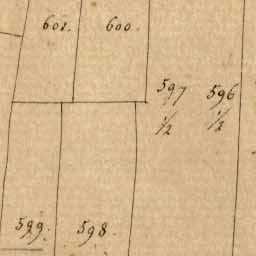 601. 600.
597 596
1/2 1/2
599. 598.